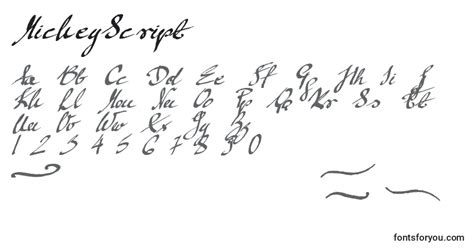 MickeyScript
Aa Bb Cc Dd Ee Ff Gg Hh Ii Jj
Kk Ll Mm Nn Oo Pp Qq Rr Ss Tt
Uu Vv Ww Xx Yy Zz
1 2 3 4 5 6 7 8 9 0
fontsforyou.com